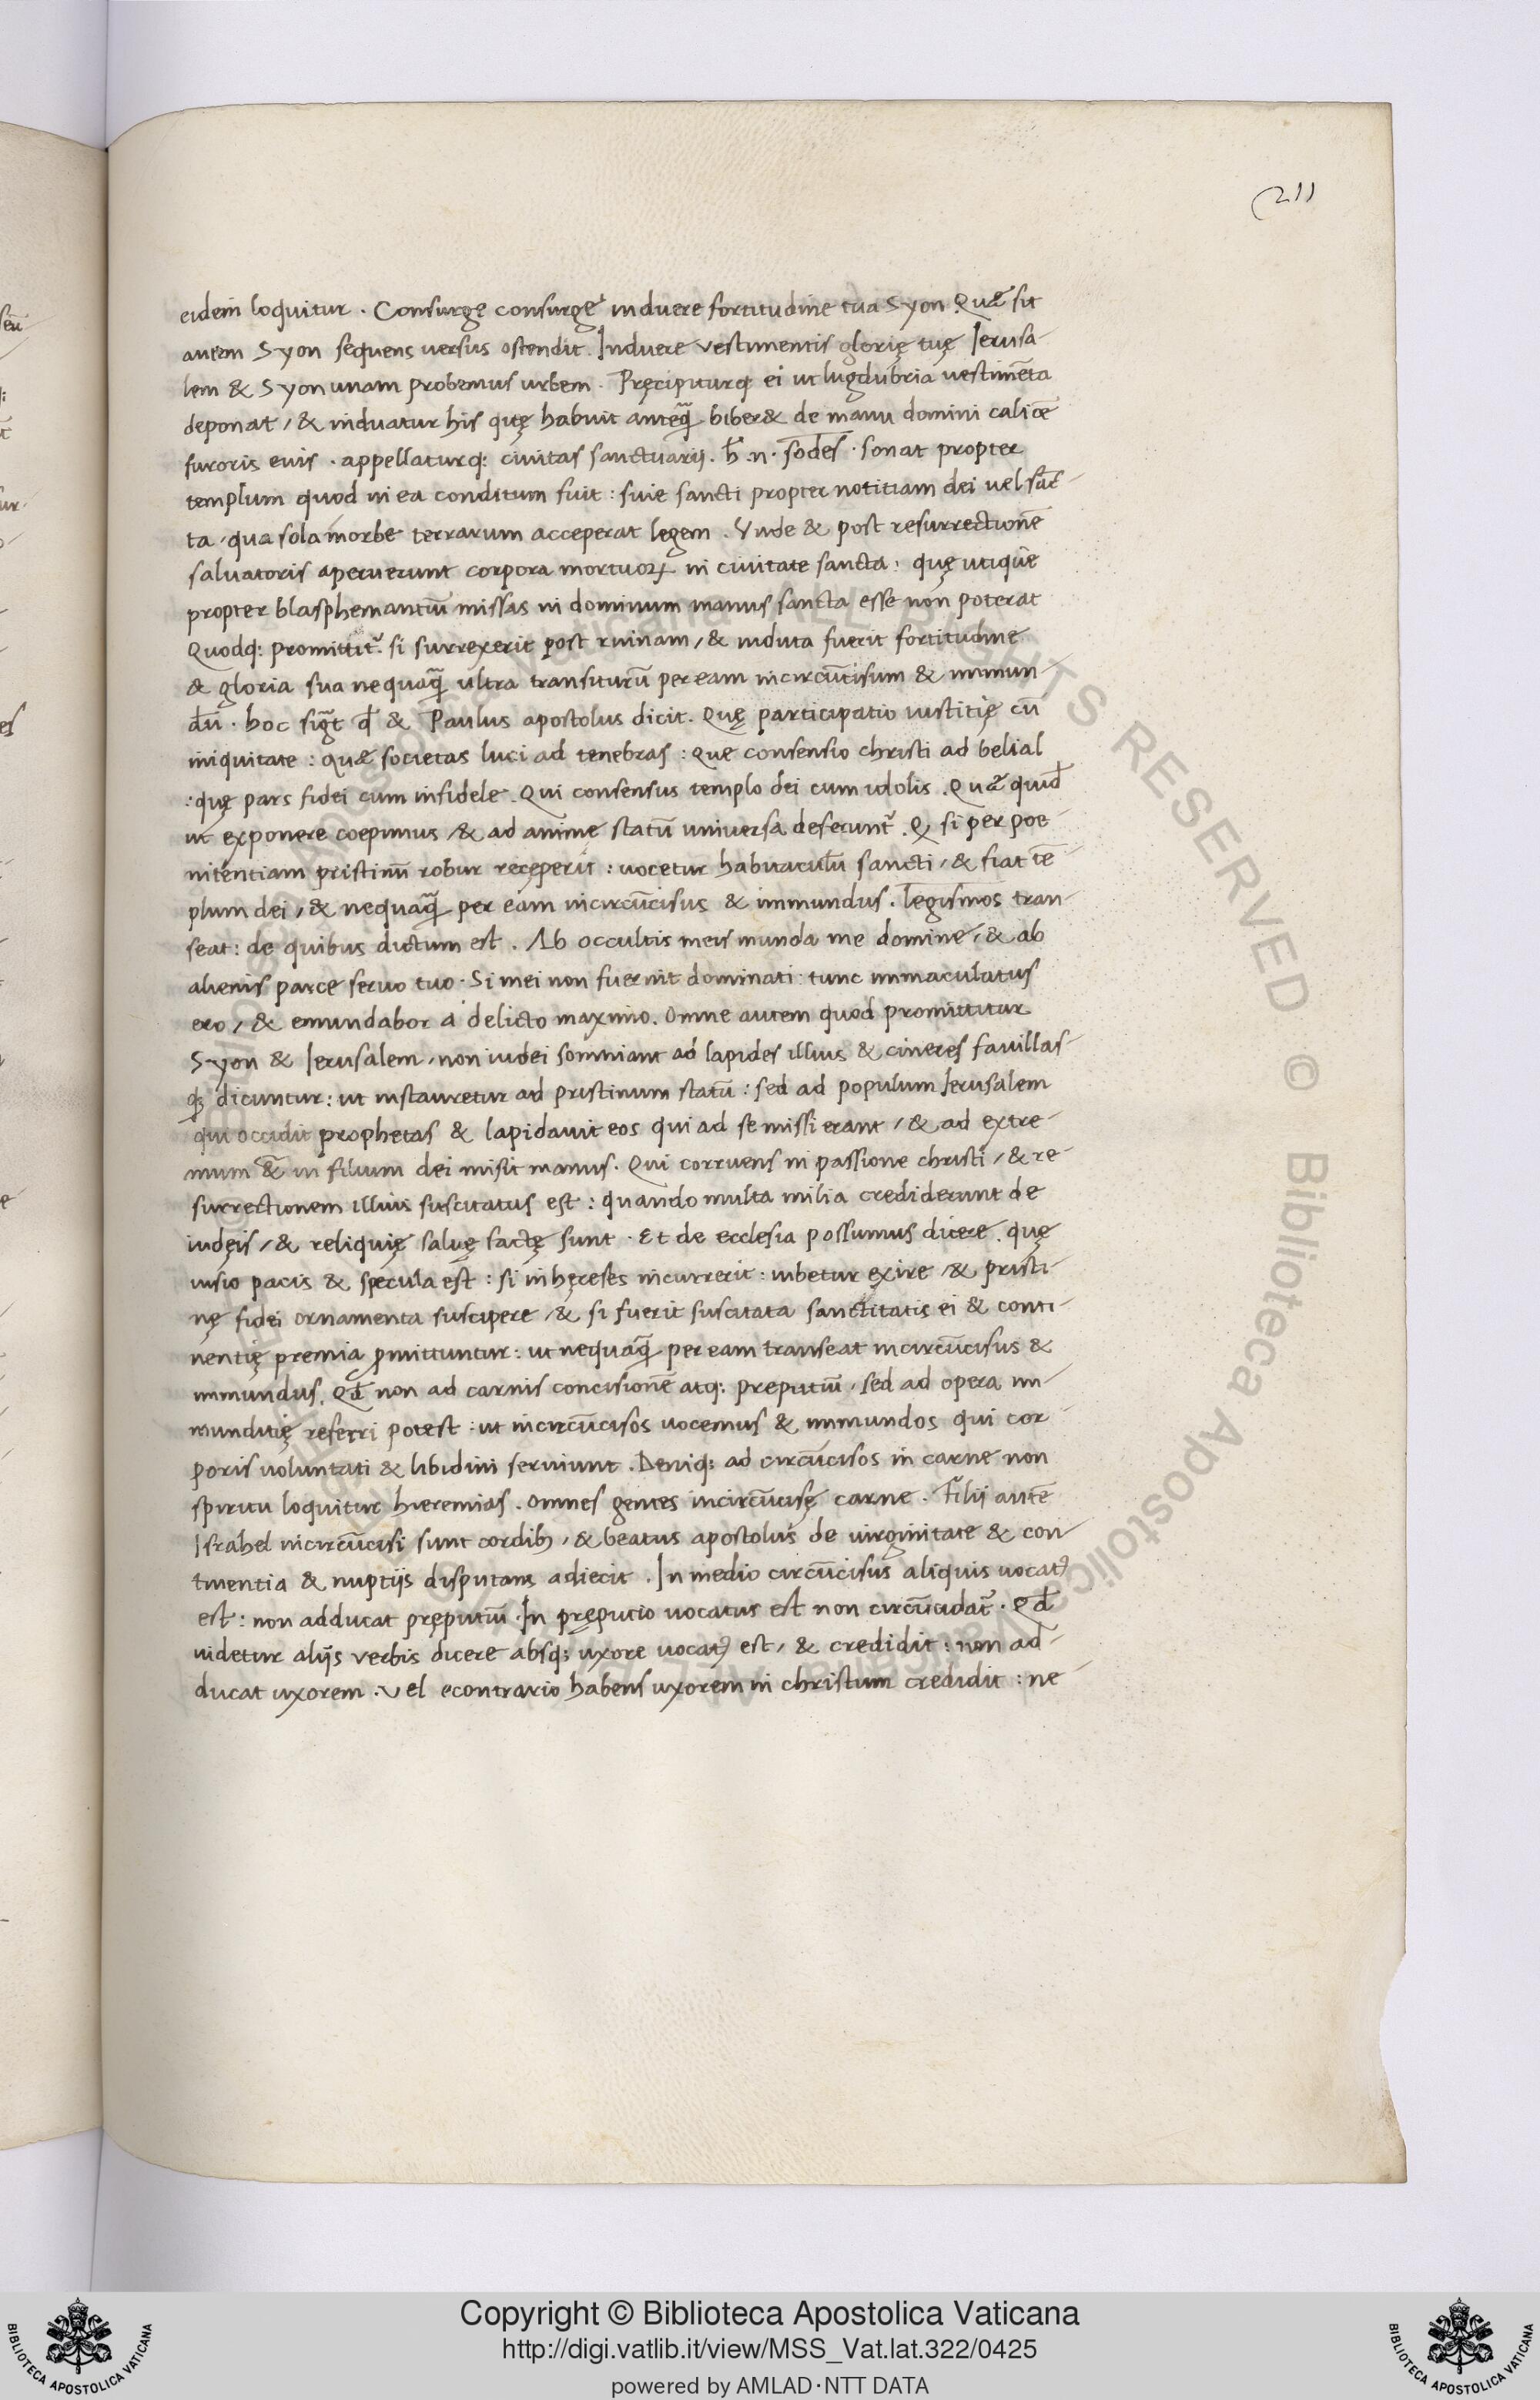 211
eidem̄ loquitur . Consurge consurge induere fortitudine tua Syon . Quæ sit
autem Syon sequens uersus ostendit . Induere vestimentis glorię tuę Ierusa-
lem & Syon unam probemus urbem . Pręcipiturq; ei ut lugdubria uestimēta
deponat / & induatur his quę habuit anteq̄ biber& de manu domini calicē
furoris euis . appellaturq; ciuitas sanctuarij . h̄ .n. sodes . sonat propter
templum quod in ea conditum fuit : siue sancti propter notitiam dei uel sāc-
ta / qua sola in orbe terrarum acceperat legem . Vnde & post resurrectionē
saluatoris aperuerunt corpora mortuoꝝ in ciuitate sancta : quę utique
propter blasphemantiū missas in dominum manus sancta esse non poterat
Quodq; promittit᷑ . si surrexerit post ruinam / & induta fuerit fortitudine
& gloria sua nequaq̄ ultra transiturū per eam incircūcisum & immun-
dū . hoc sigt̄ qđ & Paulus apostolus dicit . Quę participatio iustitię cū
iniquitate : quæ societas luci ad tenebras : Que consensio christi ad belial
: quę pars fidei cum infidele . Qui consensus templo dei cum idolis . Quæ quid
ut exponere coepimus / & ad animę statū uniuersa deferunt᷑ . Q si per poe-
nitentiam pristinū robur receperit : uocetur habitaculū sancti / & fiat tē-
plum dei / & nequaq̄ per eam incircūcisus & immundus . legismos tran-
seat : de quibus dictum est . Ab occultis meis munda me domine / & ab
alienis parce seruo tuo . Si mei non fuerint dominati : tunc immaculatus
ero / & emundabor a delicto maximo . Omne autem quod promittitur
Syon & Ierusalem / non iudei somniant ad lapides illius & cineres fauillas-
q; dicuntur : ut instauretur ad pristinum statū : sed ad populum Ierusalem
qui occidit prophetas & lapidauit eos qui ad se missi erant / & ad extre-
mum & in filium dei misit manus . Qui corruens in passione christi / & re-
surrectionem illius suscitatus est : quando multa milia crediderunt de
iudęis / & reliquię saluę factę sunt . Et de ecclesia possumus dicere . quę
uisio pacis & specula est : si in hęreses incurrerit : iubetur exire / & pristi-
nę fidei ornamenta suscipere / & si fuerit suscitata sanctitatis ei & conti-
nentię premia ꝓmittuntur : ut nequaq̄ per eam transeat incircūcisus &
immundus . Qđ non ad carnis concisionē atq; preputiū / sed ad opera im-
munditię referri potest : ut incircūcisos uocemus & immundos qui cor-
poris uoluntati & libidini seruiunt . Deniq; ad circūcisos in carne non
spiritu loquitur hieremias . Omnes gentes incircūcisę carne . Filij autē
Israhel incircūcisi sunt cordib; / & beatus apostolus de uirginitate & con-
tinentia & nuptijs disputans adiecit . In medio circūcisus aliquis uocatꝰ
est : non adducat pręputiū . In pręputio uocatus est non circūcidat᷑ . Qđ
uidetur alijs verbis dicere absq; uxore uocatꝰ est / & credidit : non ad-
ducat uxorem . Vel econtrario habens uxorem in christum credidit : ne
Copyright © Biblioteca Apostolica Vaticana
http://digi.vatlib.it/view/MSS_Vat.lat.322/0425
powered by AMLAD·NTT DATA